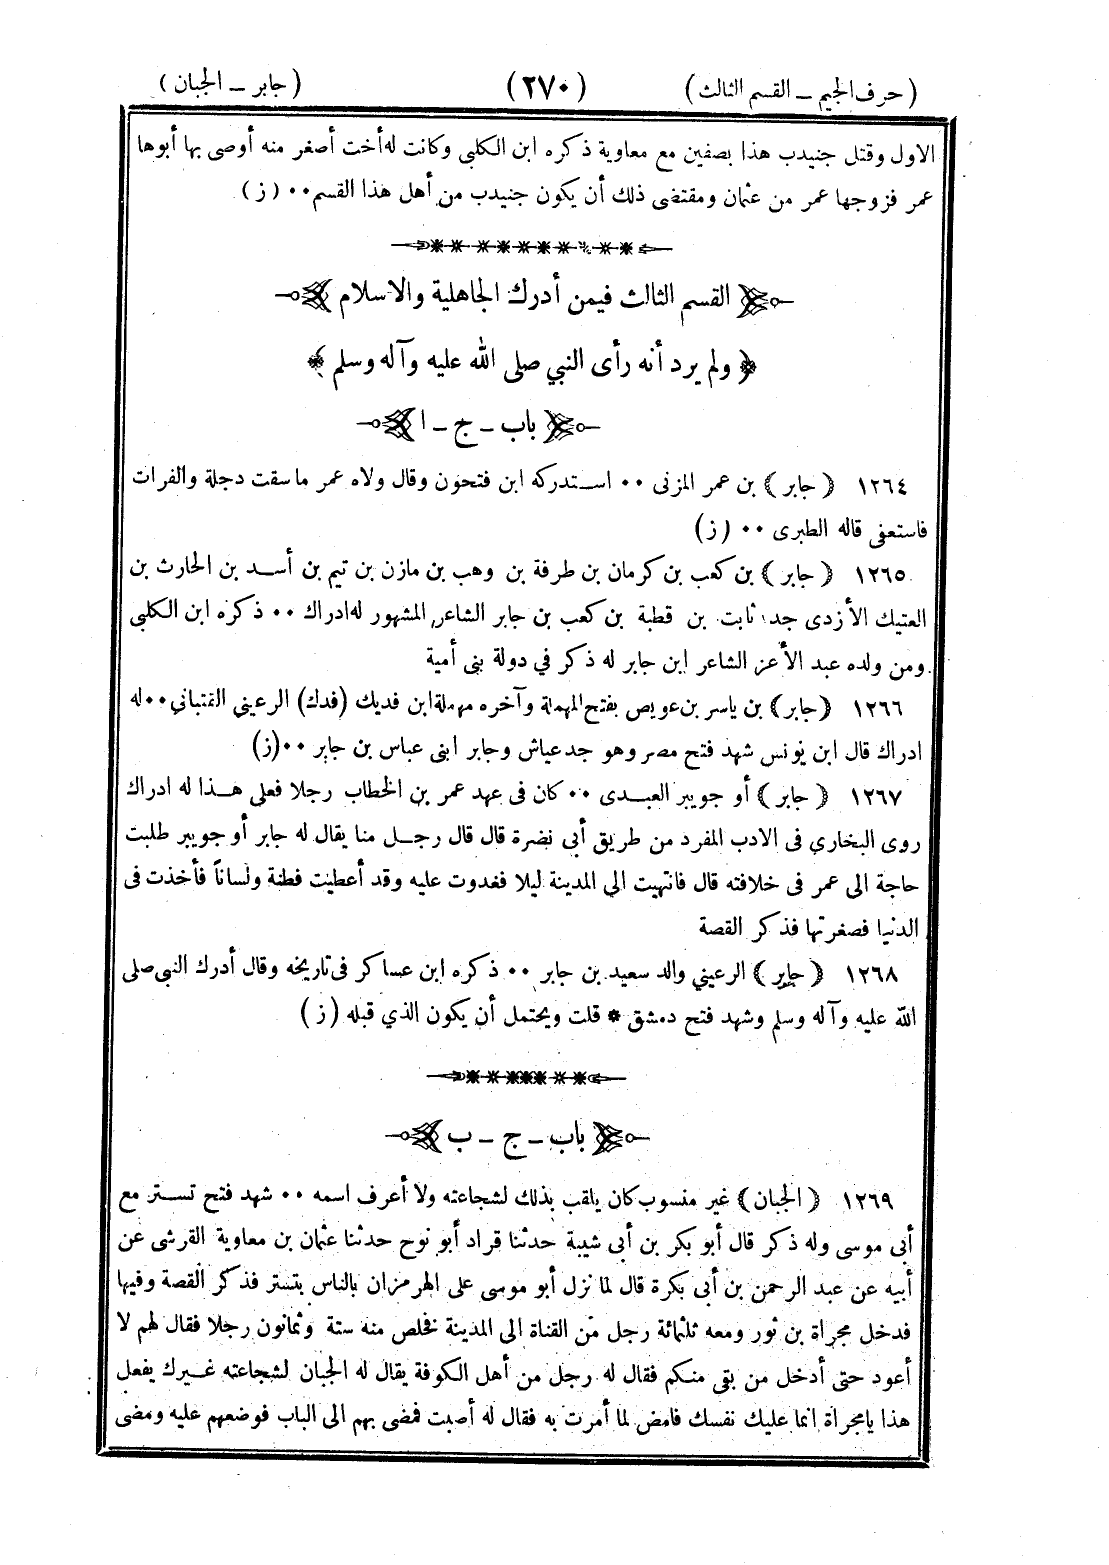 ( حرف الجيم ــ القسم الثالث ) ( ٢٧٠ ) ( جابر ــ الجبان )
الاول وقتل جنيدب هذا بصفين مع معاوية ذكره ابن الكلبي وكانت له أخت أصغر منه أوصى بها أبوها
عمر فزوجها عمر من عثمان ومقتضى ذلك أن يكون جنيدب من أهل هذا القسم ٠٠ ( ز )
القسم الثالث فيمن أدرك الجاهلية والاسلام
ولم يرد أنه رأى النبي صلى الله عليه وآله وسلم
باب ــ ج ــ ا
١٢٦٤ ( جابر ) بن عمر المزنى ٠٠ استدركه ابن فتحون وقال ولاه عمر ماسقت دجلة والفرات
فاستعفى قاله الطبرى ٠٠ ( ز )
١٢٦٥ ( جابر ) بن كعب بن كرمان بن طرفة بن وهب بن مازن بن تيم بن أسد بن الحارث بن
العتيك الأزدى جد ثابت بن قطبة بن كعب بن جابر الشاعر المشهور له ادراك ٠٠ ذكره ابن الكلبى
ومن ولده عبد الأعز الشاعر ابن جابر له ذكر في دولة بنى أمية
١٢٦٦ ( جابر ) بن ياسر بن عويص بفتح المهملة وآخره مهملة ابن فديك (فدك) الرعيني القتباني ٠٠ له
ادراك قال ابن يونس شهد فتح مصر وهو جد عياش وجابر ابنى عباس بن جابر ٠٠ (ز)
١٢٦٧ ( جابر ) أو جويبر العبدى ٠٠ كان فى عهد عمر بن الخطاب رجلا فعلى هذا له ادراك
روى البخاري فى الادب المفرد من طريق أبى نضرة قال قال رجل منا يقال له جابر أو جويبر طلبت
حاجة الى عمر فى خلافته قال فانتهيت الى المدينة ليلا فغدوت عليه وقد أعطيت فطنة ولساناً فأخذت فى
الدنيا فصغرتها فذكر القصة
١٢٦٨ ( جابر ) الرعيني والد سعيد بن جابر ٠٠ ذكره ابن عساكر فى تاريخه وقال أدرك النبى صلى
الله عليه وآله وسلم وشهد فتح دمشق * قلت ويحتمل أن يكون الذي قبله ( ز )
باب ــ ج ــ ب
١٢٦٩ ( الجبان ) غير منسوب كان يلقب بذلك لشجاعته ولا أعرف اسمه ٠٠ شهد فتح تستر مع
أبى موسى وله ذكر قال أبو بكر بن أبى شيبة حدثنا قراد أبو نوح حدثنا عثمان بن معاوية القرشى عن
أبيه عن عبد الرحمن بن أبى بكرة قال لما نزل أبو موسى على الهرمزان بالناس بتستر فذكر القصة وفيها
فدخل مجراة بن ثور ومعه ثلثمائة رجل من القناة الى المدينة فخلص منه ستة وثمانون رجلا فقال لهم لا
أعود حتى أدخل من بقى منكم فقال له رجل من أهل الكوفة يقال له الجبان لشجاعته غيرك يفعل
هذا يامجراة انما عليك نفسك فامض لما أمرت به فقال له أصبت فمضى بهم الى الباب فوضعهم عليه ومضى